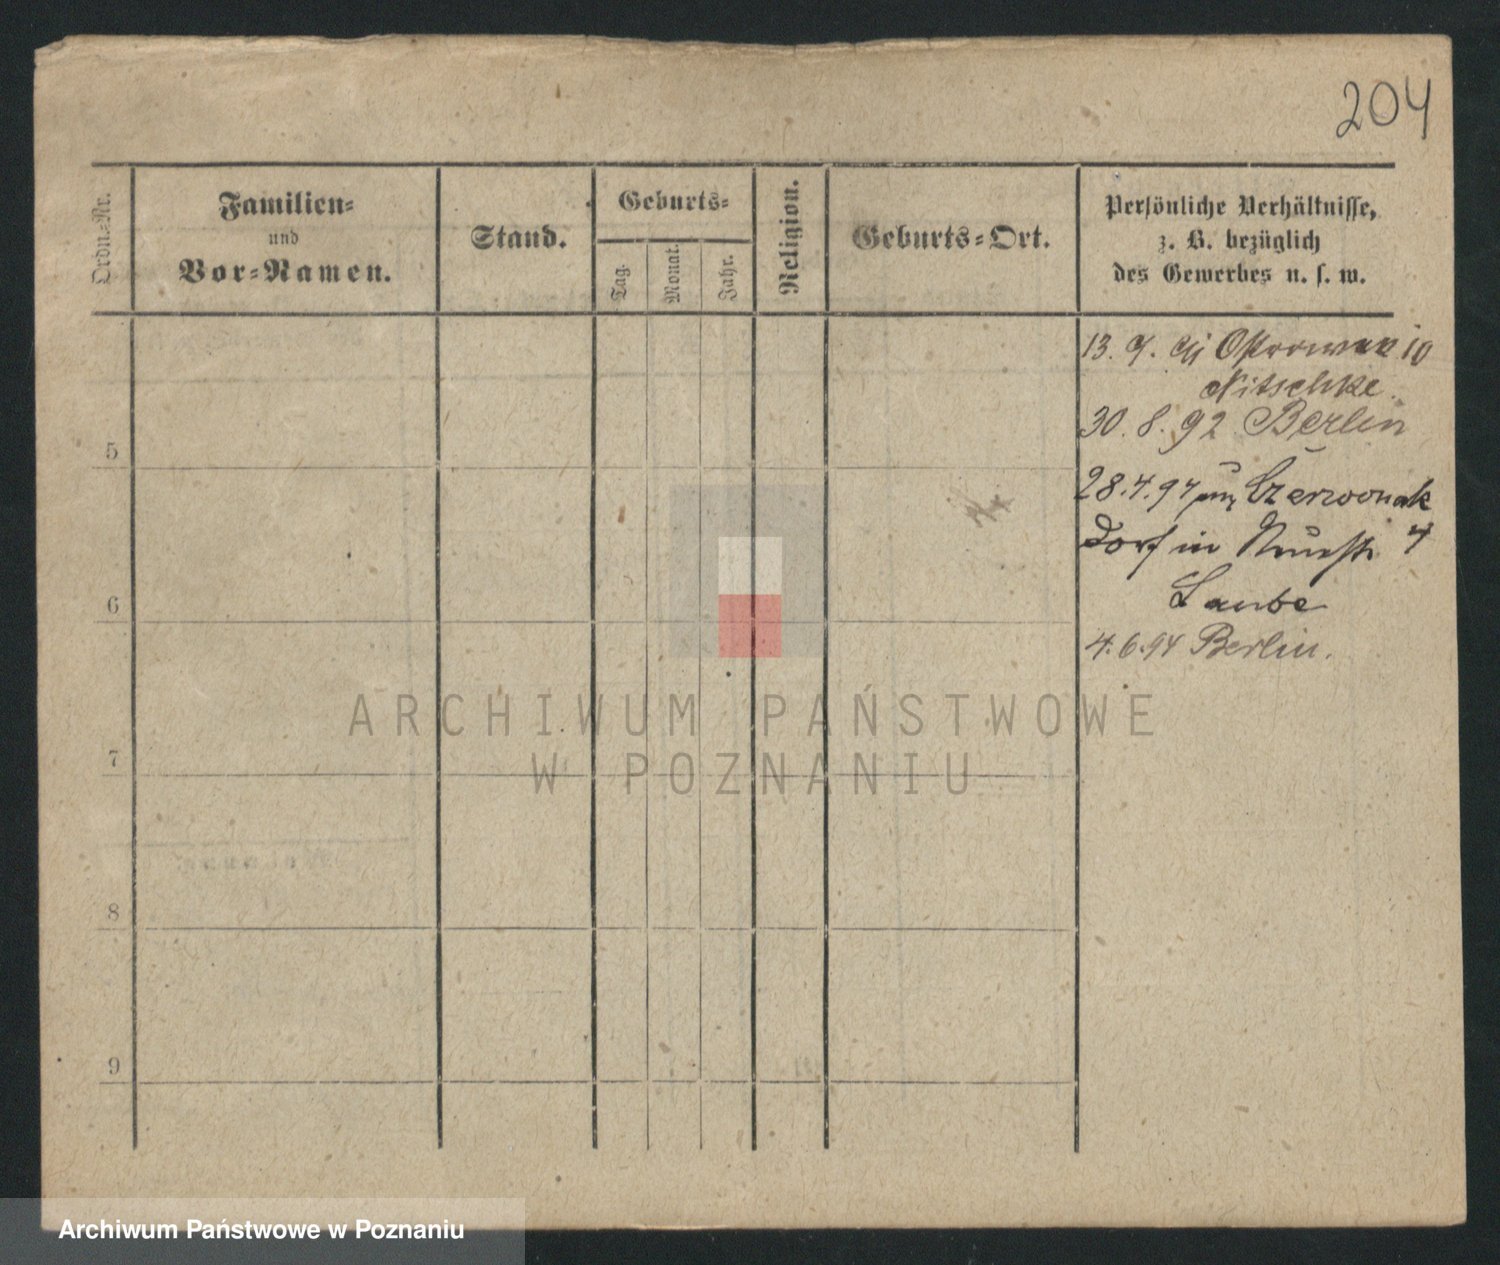 204
Ordn.-Nr.
Familien-
und
Vor-Namen.
Stand.
Geburts-
Tag.
Monat.
Jahr.
Religion.
Geburts-Ort.
Persönliche Verhältnisse,
z. B. bezüglich
des Gewerbes u. s. w.
13. 9.
Nitschke.
30. 8. 92 Berlin
5
28.4.94 Czerwonak
Dorf in
6
Laube
4.6.94 Berlin.
ARCHIWUM PAŃSTWOWE
W POZNANIU
7
8
9
Archiwum Państwowe w Poznaniu